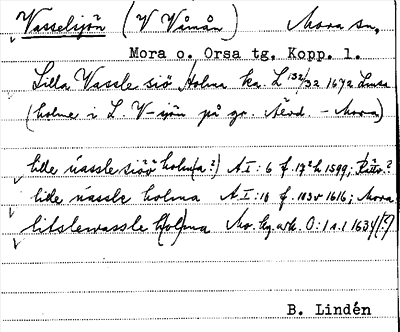 Vasselsjön (V Vånån) Mora sn,
Mora o. Orsa tg. Kopp. l.
Lilla Vassle siö Holma ka. L 132/32 1672 Lmsa
(holme i L. V-sjön på gr. Älvd. - Mora)
lille vassle siöö holm(a?) A I:6 f. 17 h 1599;
lille vassle holma A I:18 f. 103v 1616; Mora
litslewassle h(ol)ma Mo. hg. ark. O:1 a.1 1634/(?)
B. Lindén